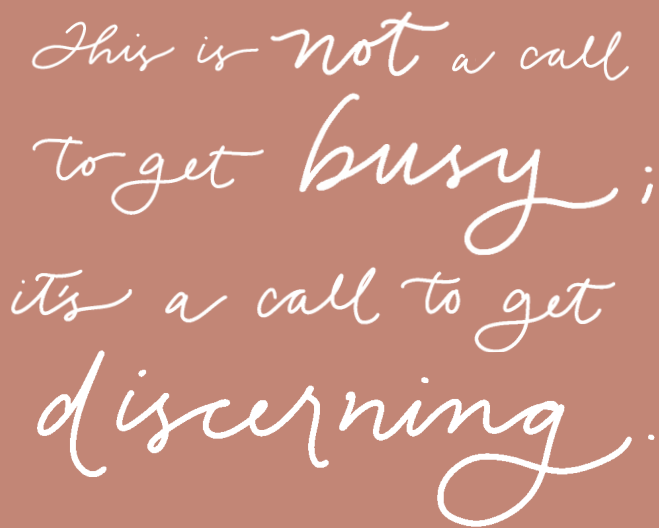 This is not a call
to get busy ;
it's a call to get
discerning .